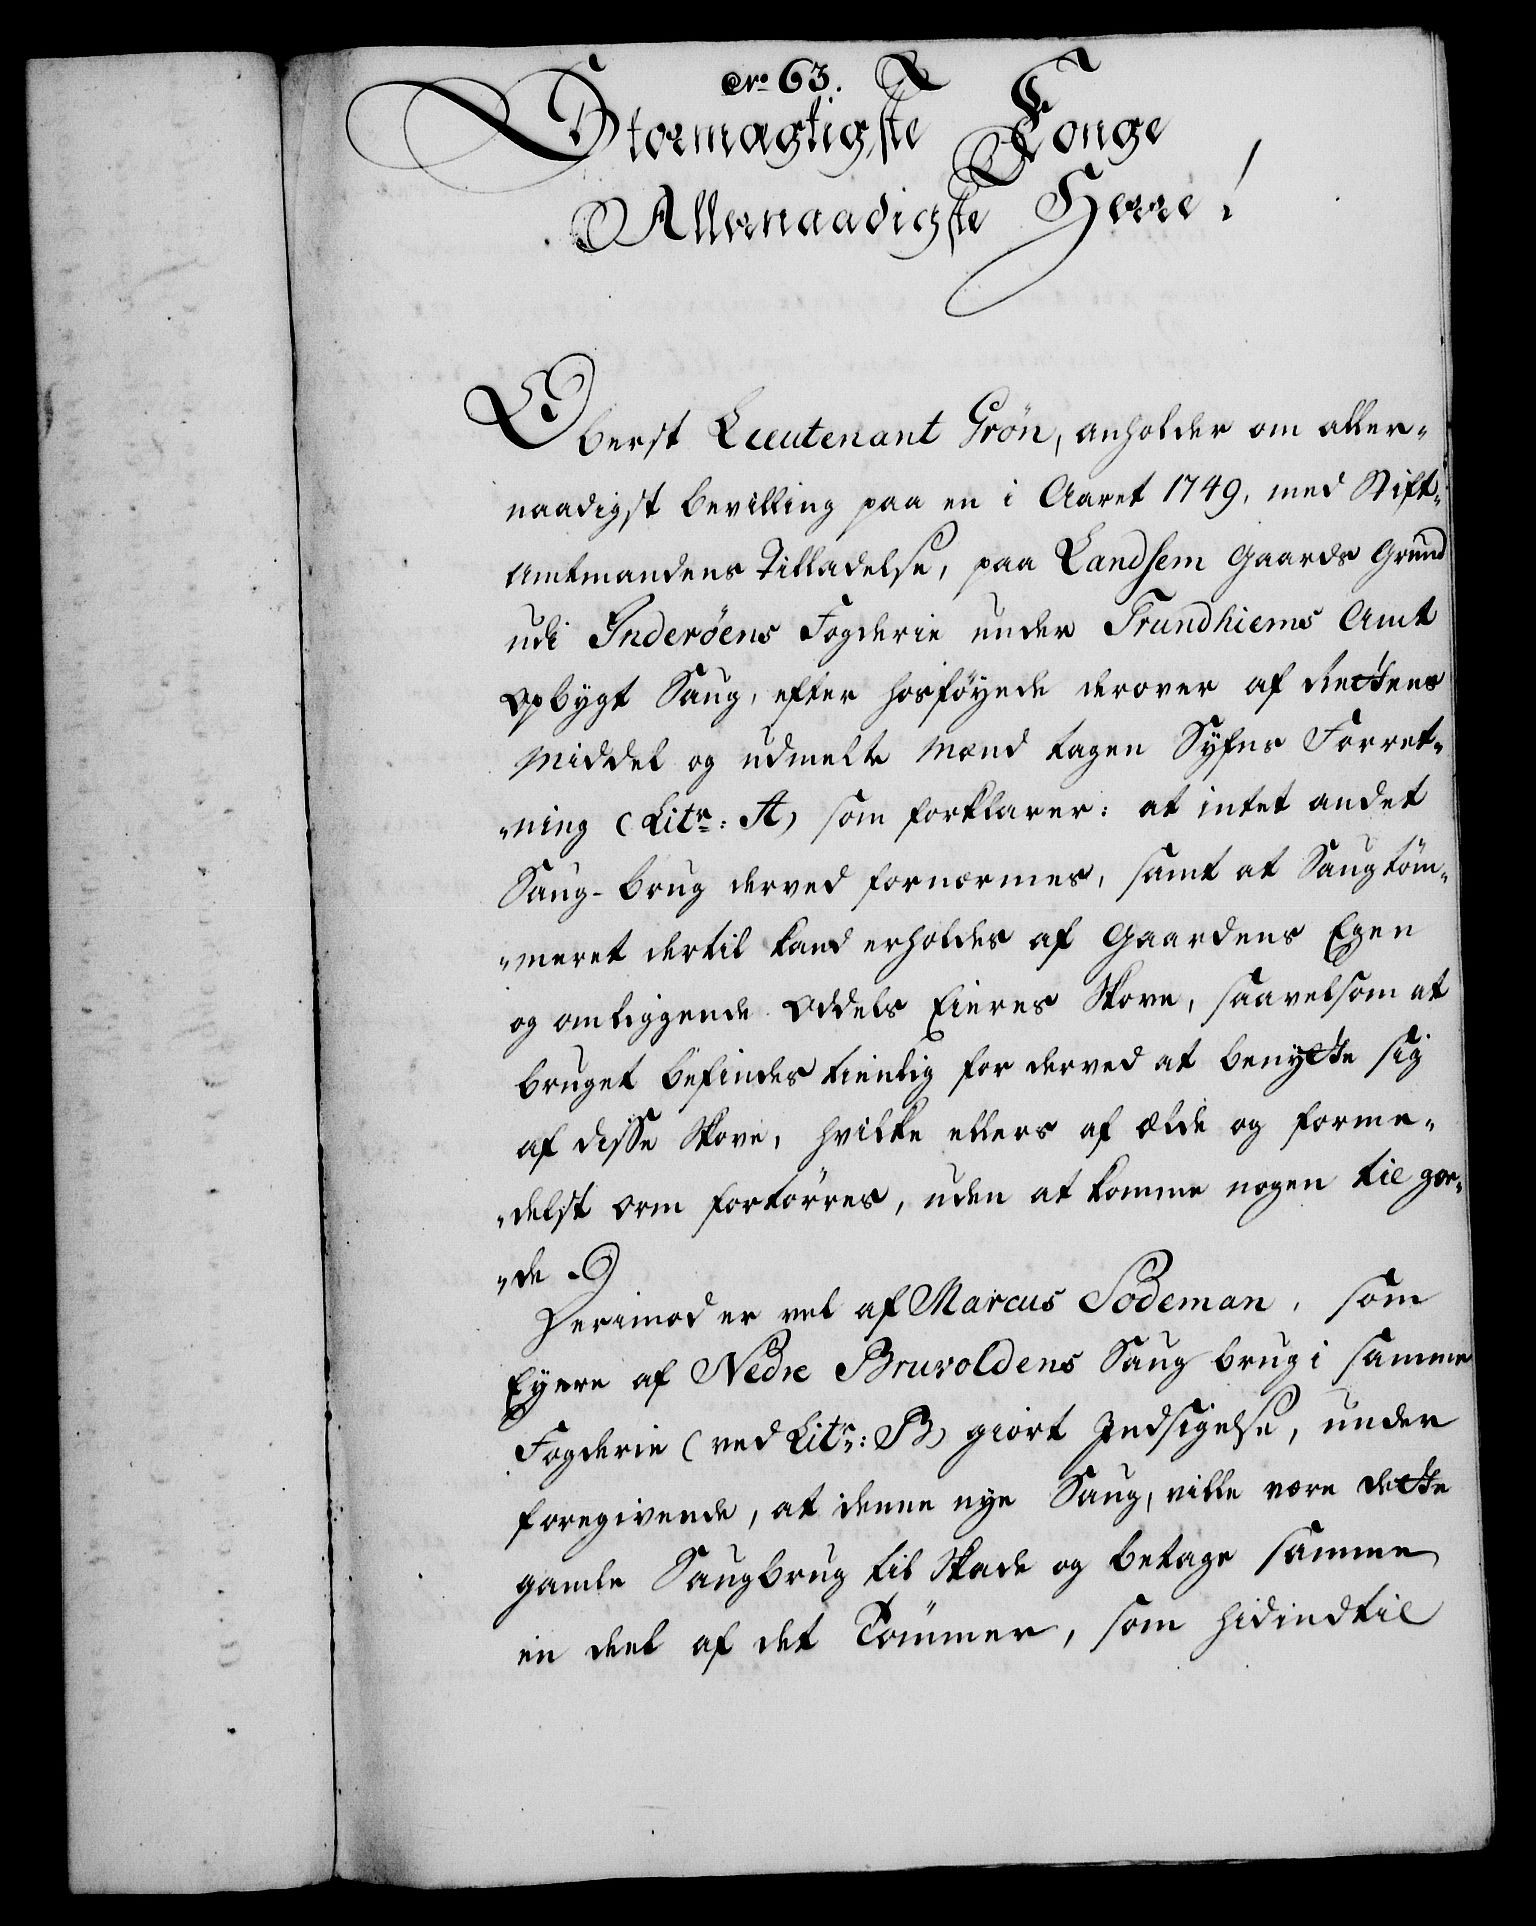 No. 63.
Stormægtigste Konge
Allernaadigste Herre!
Oberst Lieutenant Grøn, anholder om aller-
naadigst bevilling paa en i Aaret 1749, med Stift-
Amtmandens Tilladelse, paa Landsem Gaards Grund
udi Inderøens Fogderie under Trundhiems Amt
Opbygt Saug, efter hosføyede derover af Rettens
Middel og udmelte Mænd tagen Syfns Forret-
"ning (Litr: A) som forklarer: at intet andet
Saug-brug derved fornærmes, samt at Saugtöm-
"meret dertil kand erholdes af Gaardens Egen
og omliggende Oddels Eieres Skove, saavelsom at
bruget befindes tienlig for derved at benytte sig
af disse Skove, hvilke ellers af Ælde og forme-
"delst Orm fortørres, uden at komme nogen til goe-
"de
Herimod er vel af Marcus Sodeman, som
Eyere af Nedre Bruvoldens Saug brug i samme
Fogderie (ved Litr: B) giort Indsigelse, under
foregivende, at denne nye Saug, ville være dette
gamle Saugbrug til Skade og betage samme
en deel af det Tömmer, som hidindtil